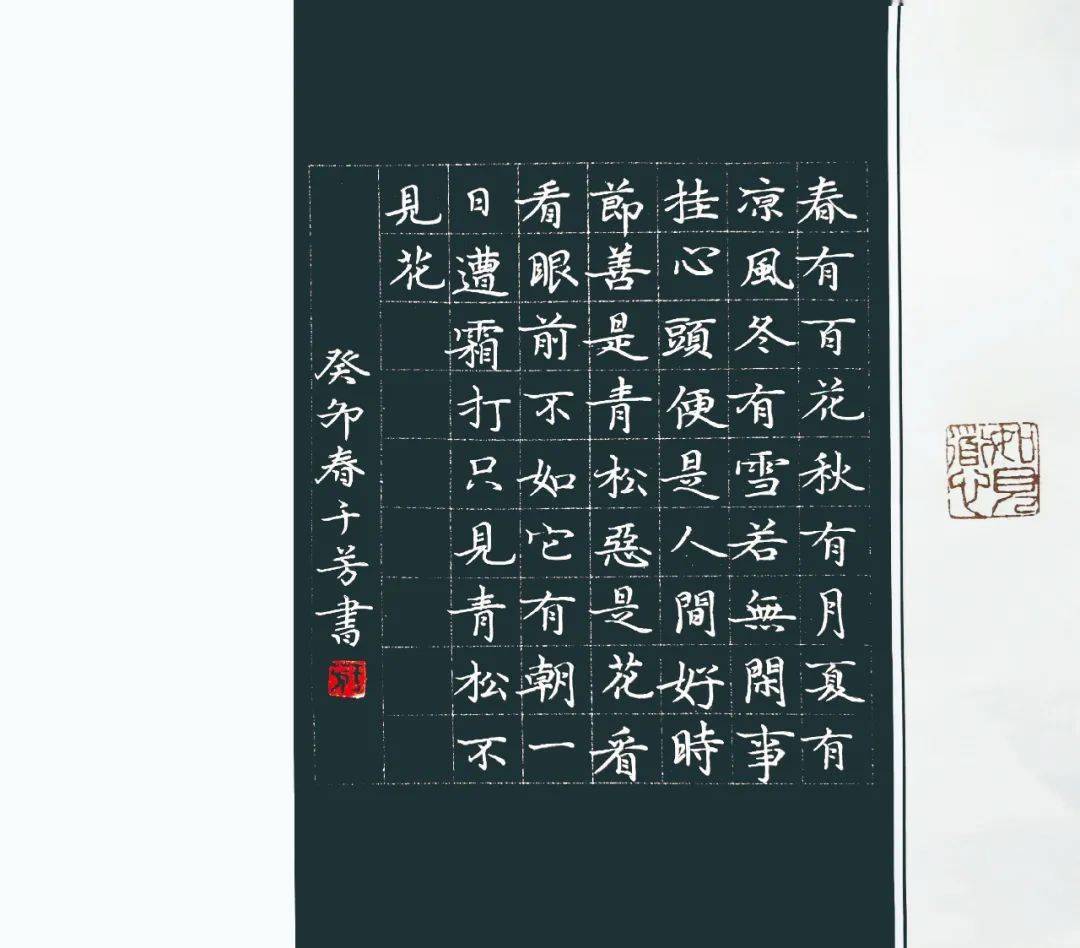 春有百花秋有月夏有
凉風冬有雪若無閑事
挂心頭便是人間好時
節善是青松惡是花看
看眼前不如它有朝一
日遭霜打只見青松不
見花
癸卯春千芳書